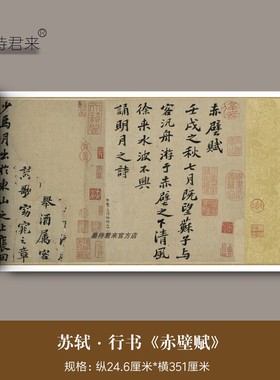 待君来®
赤壁賦
壬戌之秋七月既望蘇子與
客汎舟游于赤壁之下清風
徐来水波不興
舉酒屬客
誦明月之詩
歌窈窕之章
少焉月出於東山之上
待君来官方店
苏轼·行书《赤壁赋》
规格：纵24.6厘米*横351厘米